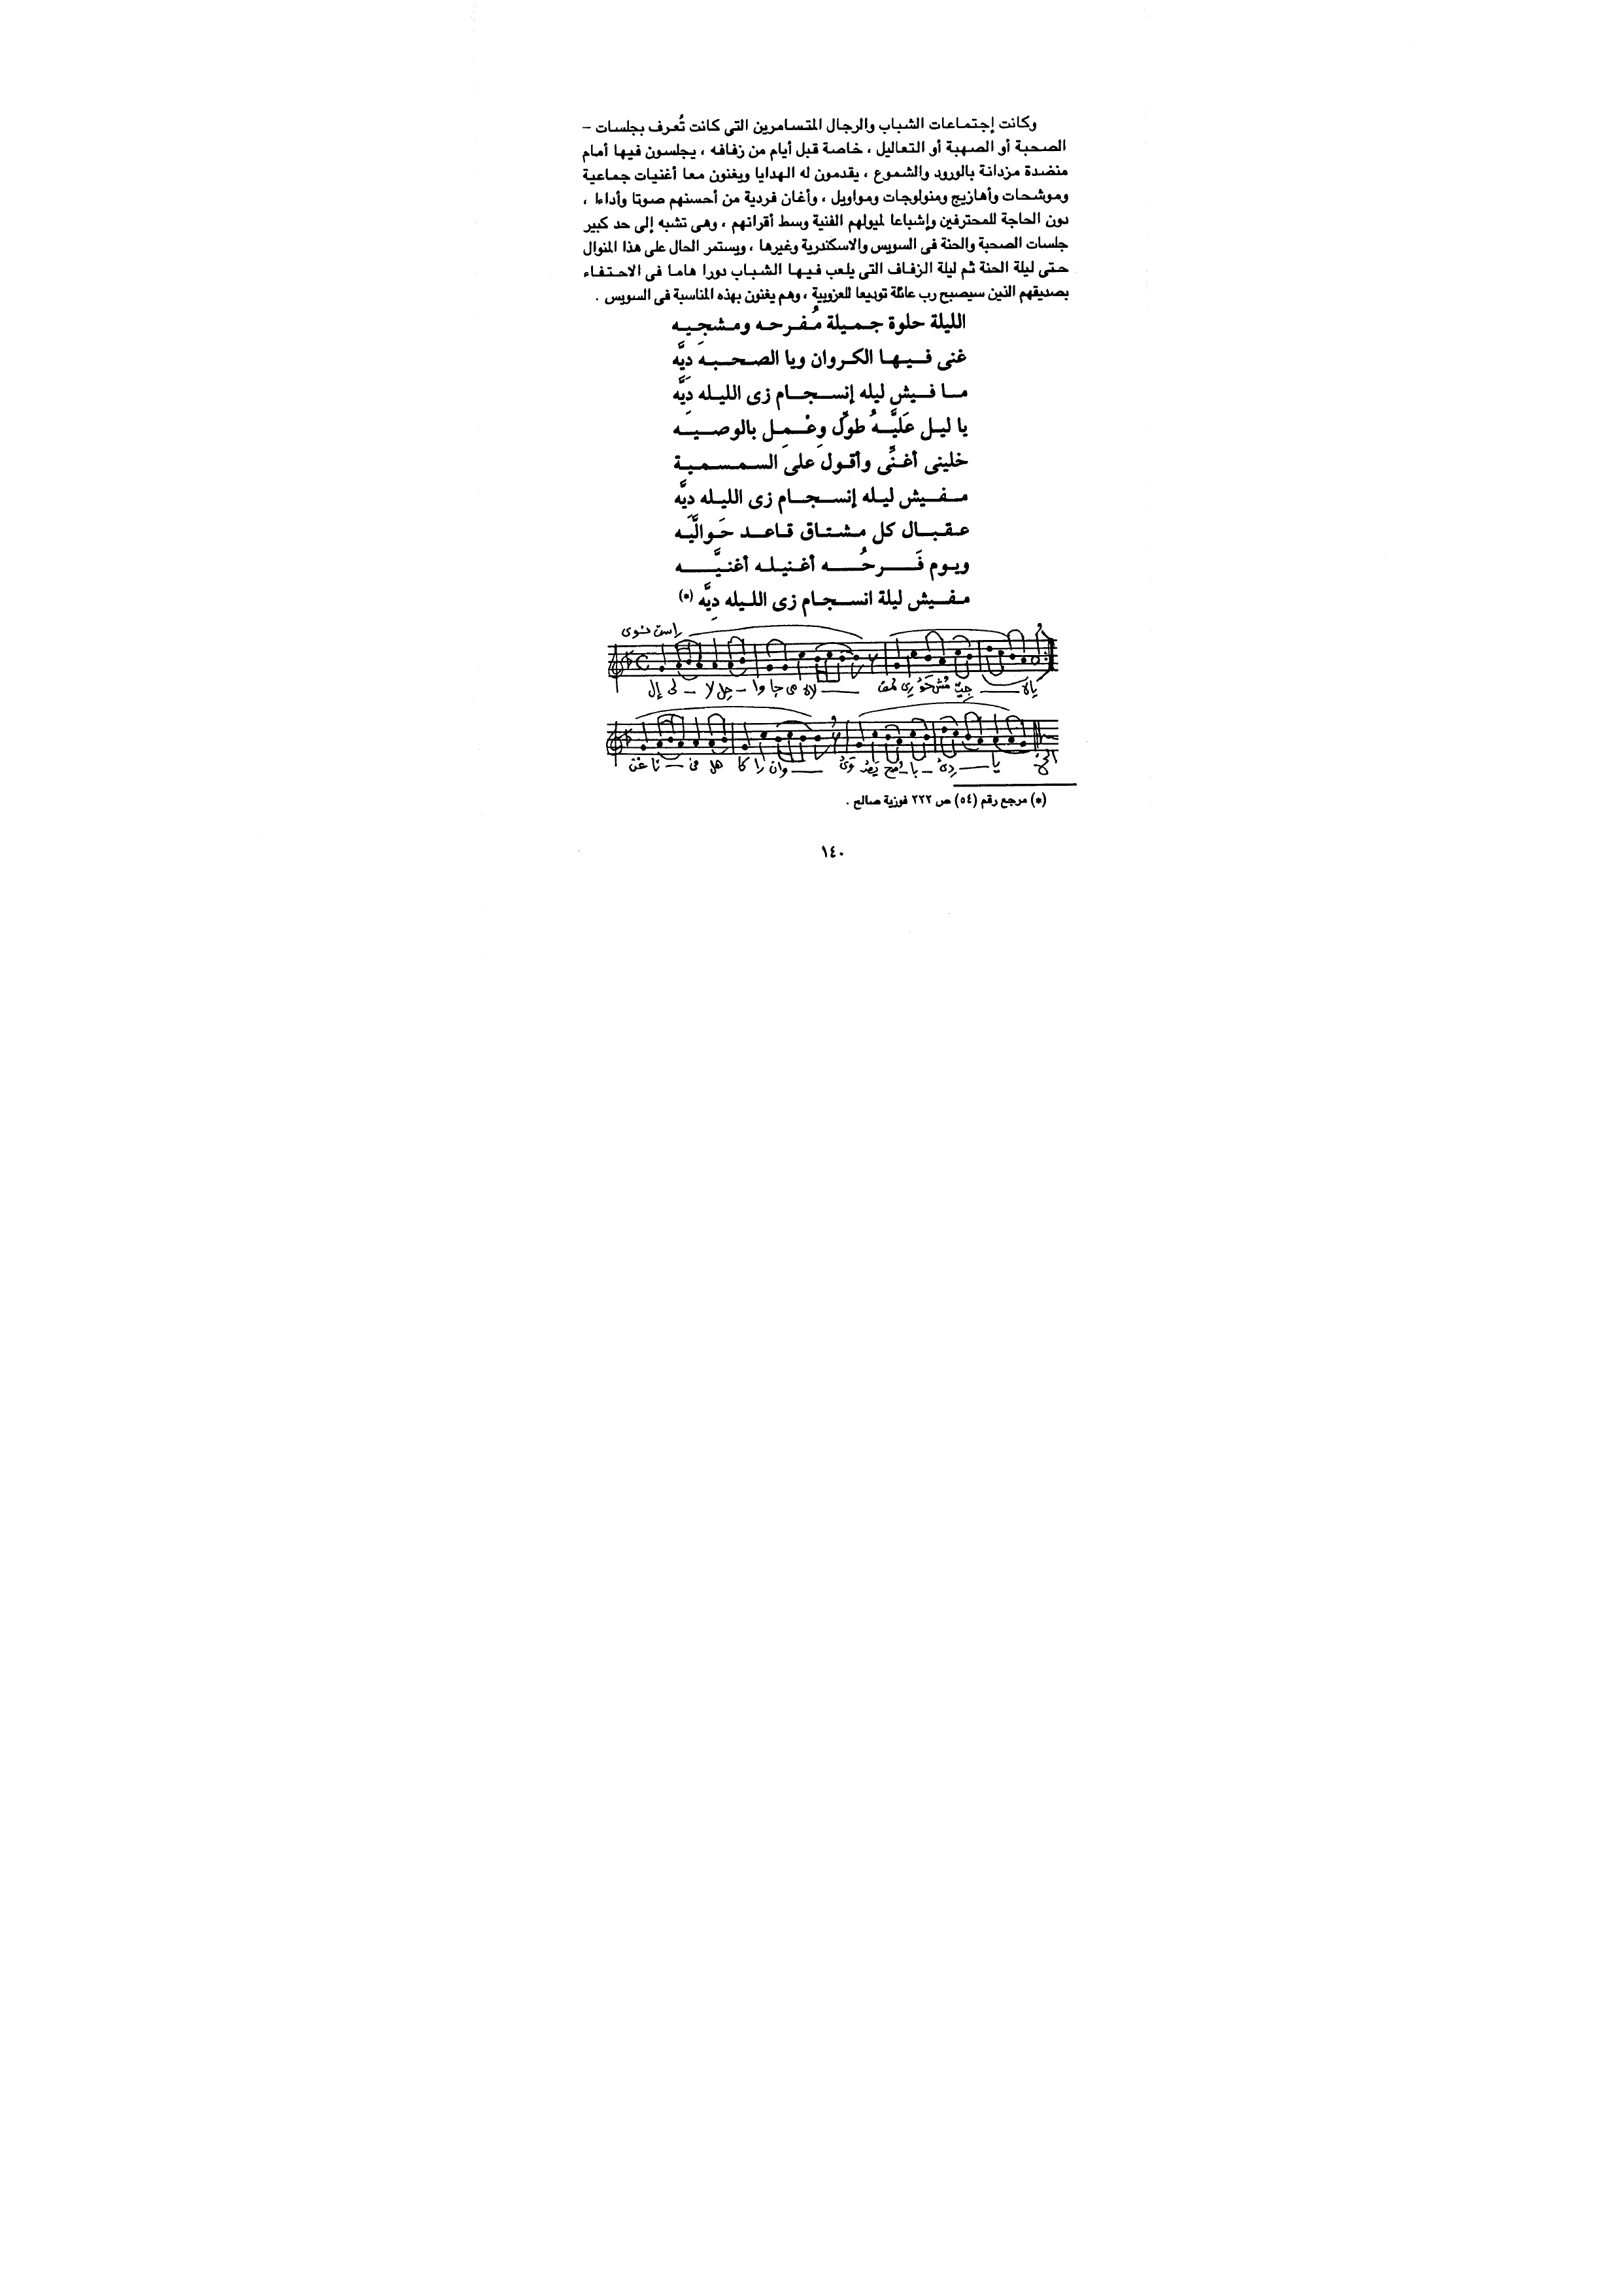 وكانت إجتماعات الشباب والرجال المتسامرين التى كانت تُعرف بجلسات –
الصحبة أو الصهبة أو التعاليل ، خاصة قبل أيام من زفافه ، يجلسون فيها أمام
منضدة مزدانة بالورود والشموع ، يقدمون له الهدايا ويغنون معا أغنيات جماعية
وموشحات وأهازيج ومنولوجات ومواويل ، وأغان فردية من أحسنهم صوتا وأداءا ،
دون الحاجة للمحترفين وإشباعا لميولهم الفنية وسط أقرانهم ، وهى تشبه إلى حد كبير
جلسات الصحبة والحنة فى السويس والاسكندرية وغيرها ، ويستمر الحال على هذا المنوال
حتى ليلة الحنة ثم ليلة الزفاف التى يلعب فيها الشباب دورا هاما فى الاحتفاء
بصديقهم الذين سيصبح رب عائلة توديعا للعزوبية ، وهم يغنون بهذه المناسبة فى السويس .
الليلة حلوة جميلة مُفرحه ومشجِيه
غنى فيها الكروان ويا الصحبه ديَّه
ما فيش ليله إنسجام زى الليله دِيَّه
يا ليل عَليَّهُ طوِّل وِعْمِل بالوصيه
خلينى أغنِّى وأقول على السمسمية
مفيش ليله إنسجام زى الليله ديَّه
عقبال كل مشتاق قاعد حَوالَيَّه
ويوم فَرحُه أغنيله أغنيَّه
مفيش ليلة انسجام زى الليله دِيَّه (*)
راست نوى
إل لى – لا حِل – وا جا مى لاه
نا غنْ فى هل كا را وان
(*) مرجع رقم (٥٤) ص ٢٢٢ فوزية صالح .
١٤٠